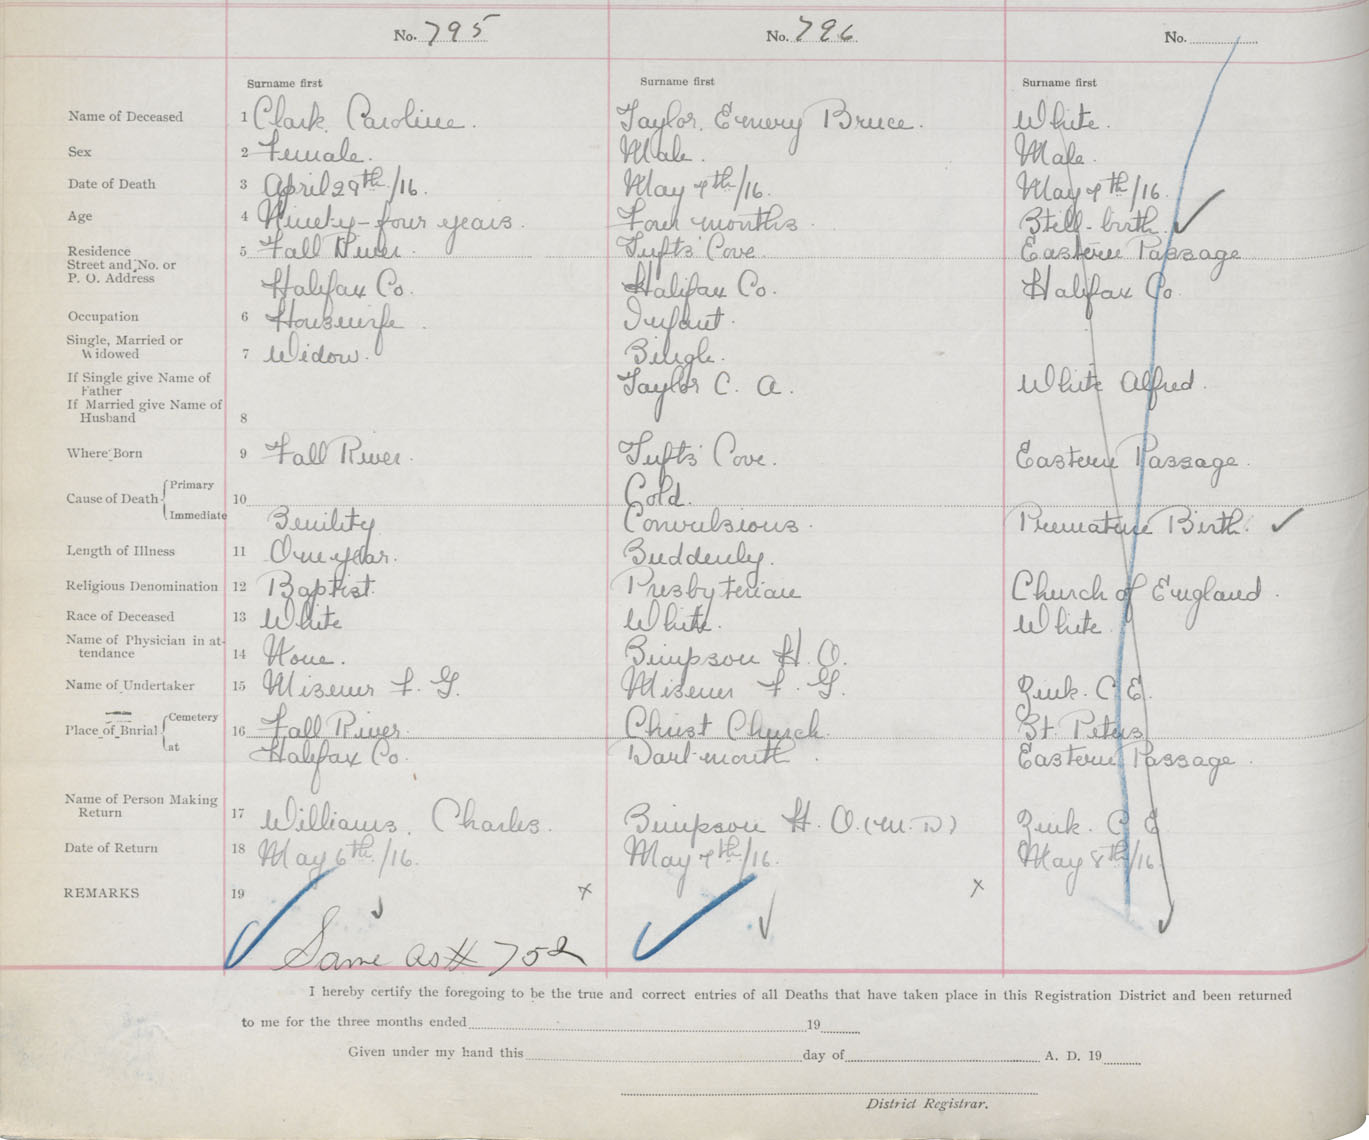 No. 795 No. 796 No.
Surname first Surname first Surname first
Name of Deceased 1 Clark, Caroline. Taylor, Emery Bruce. White.
Sex 2 Female. Male. Male.
Date of Death 3 April 29th/16. May 7th/16. May 7th/16.
Age 4 Ninety-four years. Four months. Still-birth.
Residence 5 Fall River. Tufts Cove. Eastern Passage
Street and No. or
P. O. Address Halifax Co. Halifax Co. Halifax Co.
Occupation 6 Housewife. Infant.
Single, Married or
Widowed 7 Widow. Single.
If Single give Name of
Father Taylor C. A. White Alfred.
If Married give Name of
Husband 8
Where Born 9 Fall River. Tufts Cove. Eastern Passage.
Cause of Death Primary 10 Cold.
Immediate Senility Convulsions. Premature Birth.
Length of Illness 11 One year. Suddenly.
Religious Denomination 12 Baptist. Presbyterian Church of England.
Race of Deceased 13 White White. White.
Name of Physician in at-
tendance 14 None. Simpson H. O.
Name of Undertaker 15 Misener F. G. Misener F. G. Zink. C E.
Place of Burial Cemetery 16 Fall River. Christ Church. St. Peters
at Halifax Co. Dartmouth. Eastern Passage.
Name of Person Making
Return 17 Williams, Charles. Simpson H. O. (M. D) Zink. C E
Date of Return 18 May 6th/16. May 7th/16. May 8th/16.
REMARKS 19 x x
Same as # 752
I hereby certify the foregoing to be the true and correct entries of all Deaths that have taken place in this Registration District and been returned
to me for the three months ended 19
Given under my hand this day of A. D. 19
District Registrar.